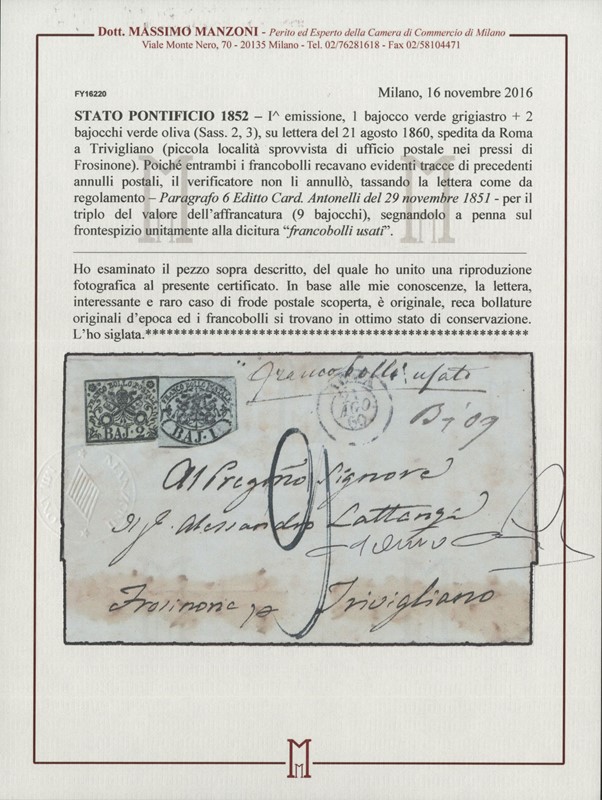 Dott. MASSIMO MANZONI - Perito ed Esperto della Camera di Commercio di Milano
Viale Monte Nero, 70 - 20135 Milano - Tel. 02/76281618 - Fax 02/58104471
FY16220
Milano, 16 novembre 2016
STATO PONTIFICIO 1852 – I^ emissione, 1 bajocco verde grigiastro + 2
bajocchi verde oliva (Sass. 2, 3), su lettera del 21 agosto 1860, spedita da Roma
a Trivigliano (piccola località sprovvista di ufficio postale nei pressi di
Frosinone). Poiché entrambi i francobolli recavano evidenti tracce di precedenti
annulli postali, il verificatore non li annullò, tassando la lettera come da
regolamento – Paragrafo 6 Editto Card. Antonelli del 29 novembre 1851 - per il
triplo del valore dell'affrancatura (9 bajocchi), segnandolo a penna sul
frontespizio unitamente alla dicitura “francobolli usati”.
Ho esaminato il pezzo sopra descritto, del quale ho unito una riproduzione
fotografica al presente certificato. In base alle mie conoscenze, la lettera,
interessante e raro caso di frode postale scoperta, è originale, reca bollature
originali d'epoca ed i francobolli si trovano in ottimo stato di conservazione.
L'ho siglata.******************************************************
FRANCO BOLLO POSTALE
BAJ·2
FRANCO BOLLO POSTALE
BAJ·1
" francobolli usati
AGO
60
Baj 09
9
Al Pregmo Signore
Il Sig. Alessandro Lattanzi
Frosinone pe Trivigliano
M